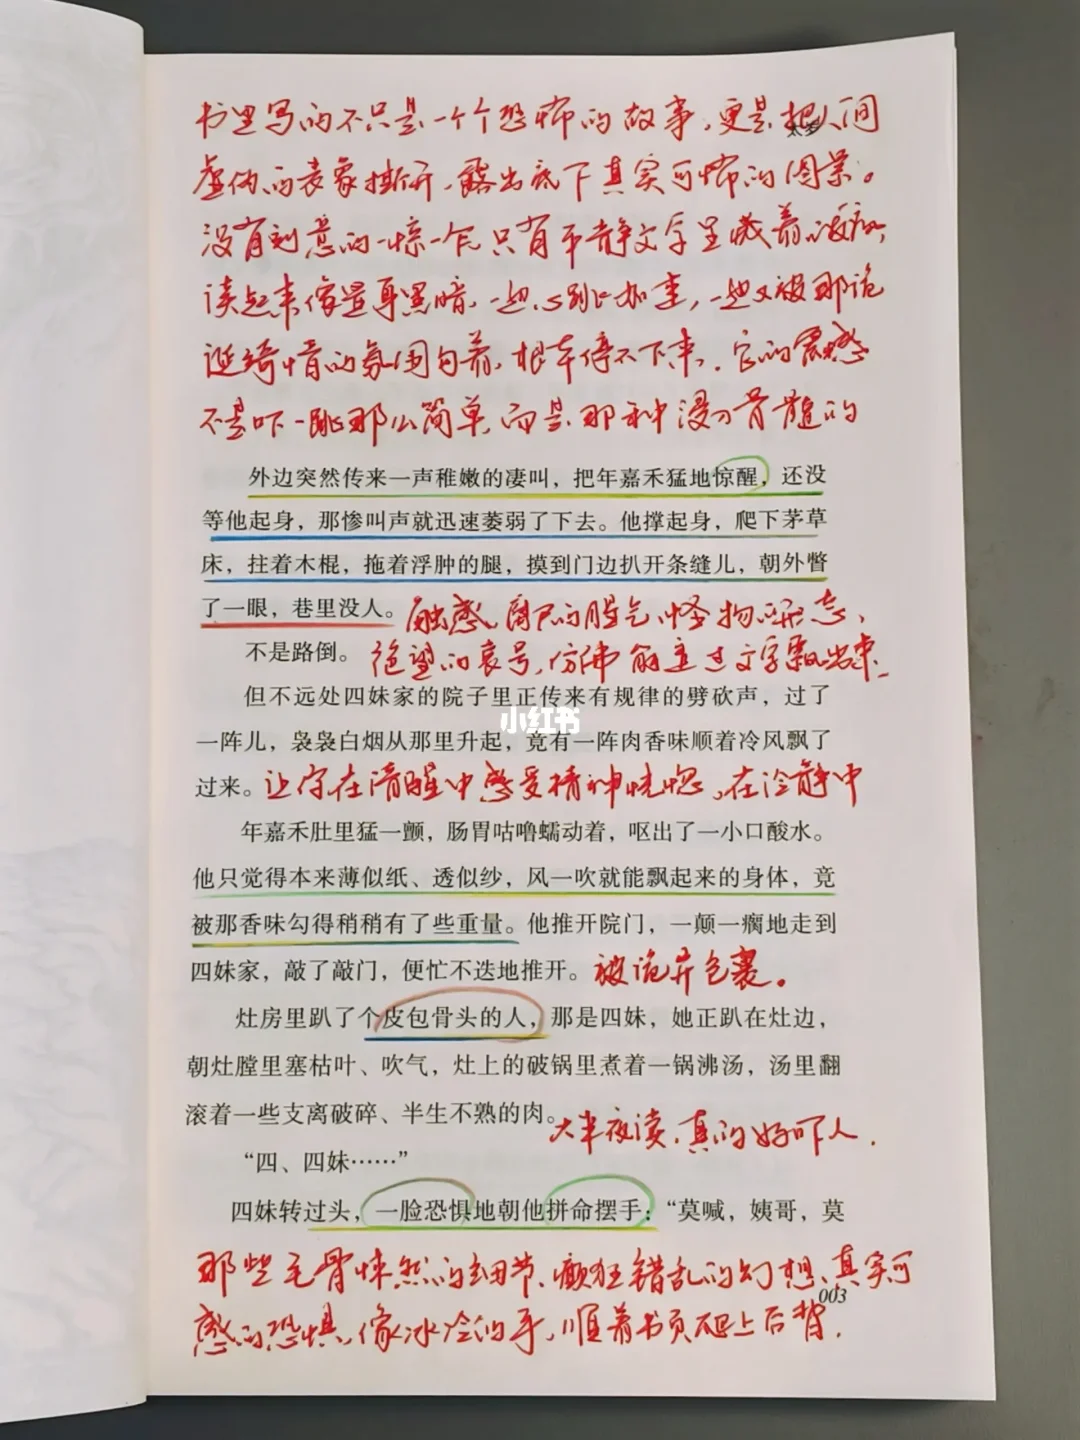 书里写的不只是一个个恐怖的故事,更是把人间
太岁
虚伪的表象撕开,露出底下真实可怖的图景。
没有刻意的一惊一乍,只有平静文字里藏着的疯,
读起来像置身黑暗,一边心跳加重,一边又被那诡
诞绮情的氛围勾着,根本停不下来。它的震感
不是吓一跳那么简单,而是那种浸到骨髓的
外边突然传来一声稚嫩的凄叫,把年嘉禾猛地惊醒,还没
等他起身,那惨叫声就迅速萎弱了下去。他撑起身,爬下茅草
床,拄着木棍,拖着浮肿的腿,摸到门边扒开条缝儿,朝外瞥
了一眼,巷里没人。触感,腐尸的腥气,怪物的形态,
不是路倒。绝望的哀号,仿佛能透过文字飘出来
但不远处四妹家的院子里正传来有规律的劈砍声,过了
小红书
一阵儿,袅袅白烟从那里升起,竟有一阵肉香味顺着冷风飘了
过来。让你在清醒中感受精神恍惚,在冷静中
年嘉禾肚里猛一颤,肠胃咕噜蠕动着,呕出了一小口酸水。
他只觉得本来薄似纸、透似纱,风一吹就能飘起来的身体,竟
被那香味勾得稍稍有了些重量。他推开院门,一颠一瘸地走到
四妹家,敲了敲门,便忙不迭地推开。被诡异包裹。
灶房里趴了个皮包骨头的人,那是四妹,她正趴在灶边,
朝灶膛里塞枯叶、吹气,灶上的破锅里煮着一锅沸汤,汤里翻
滚着一些支离破碎、半生不熟的肉。大半夜读,真的好吓人.
“四、四妹……”
四妹转过头,一脸恐惧地朝他拼命摆手:“莫喊,姨哥,莫
那些毛骨悚然的细节、癫狂错乱的幻想、真实可
003
感的恐惧,像冰冷的手,顺着书页爬上后背.